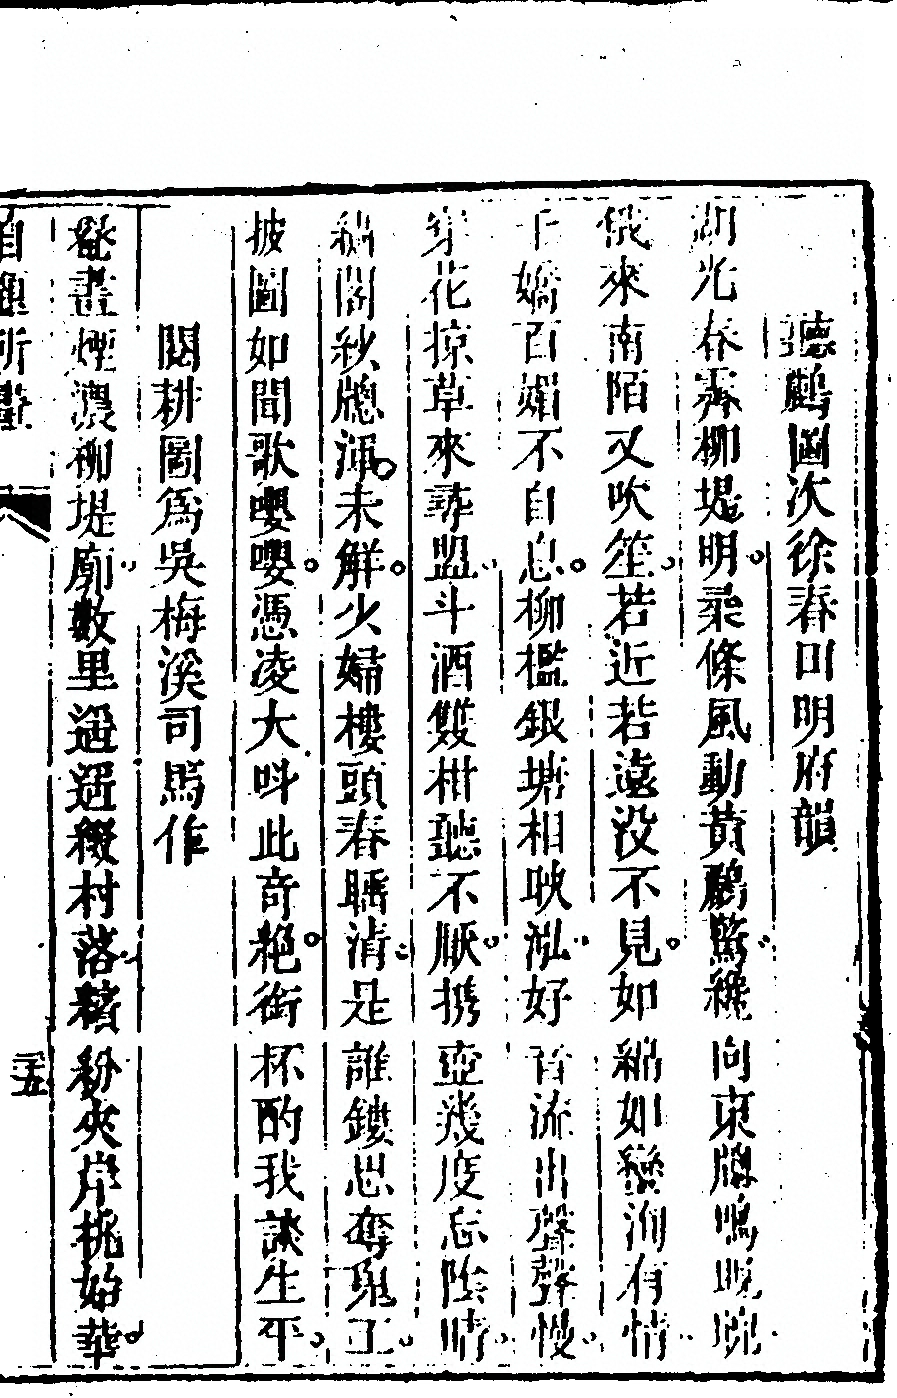 聽鸝圖次徐春田明府韻
湖光春霽柳堤明柔條風動黃鸝驚纔向東牕鳴睍睆
俄來南陌又吹笙若近若遠没不見如綿如蠻洵有情
千嬌百媚不自息柳檻銀塘相映泓好音流出聲聲慢
穿花掠草來尋盟斗酒雙柑聽不厭携壺幾度忘陰晴
繡閣紗牕渾未解少婦樓頭春睡清是誰鏤思奪鬼工
披圖如聞歌嚶嚶憑凌大呌此奇絶銜杯酌我談生平
閱耕圖爲吳梅溪司馬作
罨畫煙濃柳堤廓數里逦迤綴村落繽紛夾岸桃始華
自
所
三十五